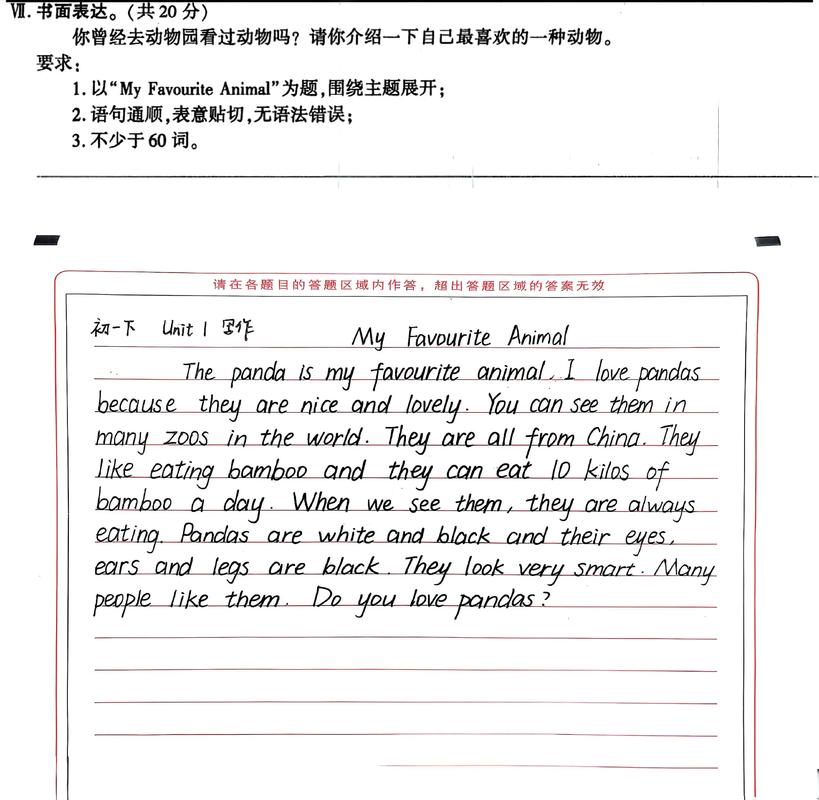 Ⅶ. 书面表达。(共 20 分)
你曾经去动物园看过动物吗？请你介绍一下自己最喜欢的一种动物。
要求：
1. 以“My Favourite Animal”为题,围绕主题展开；
2. 语句通顺,表意贴切,无语法错误；
3. 不少于 60 词。
请在各题目的答题区域内作答，超出答题区域的答案无效
初一下 Unit 1 写作
My Favourite Animal
The panda is my favourite animal. I love pandas
because they are nice and lovely. You can see them in
many zoos in the world. They are all from China. They
like eating bamboo and they can eat 10 kilos of
bamboo a day. When we see them, they are always
eating. Pandas are white and black and their eyes,
ears and legs are black. They look very smart. Many
people like them. Do you love pandas?